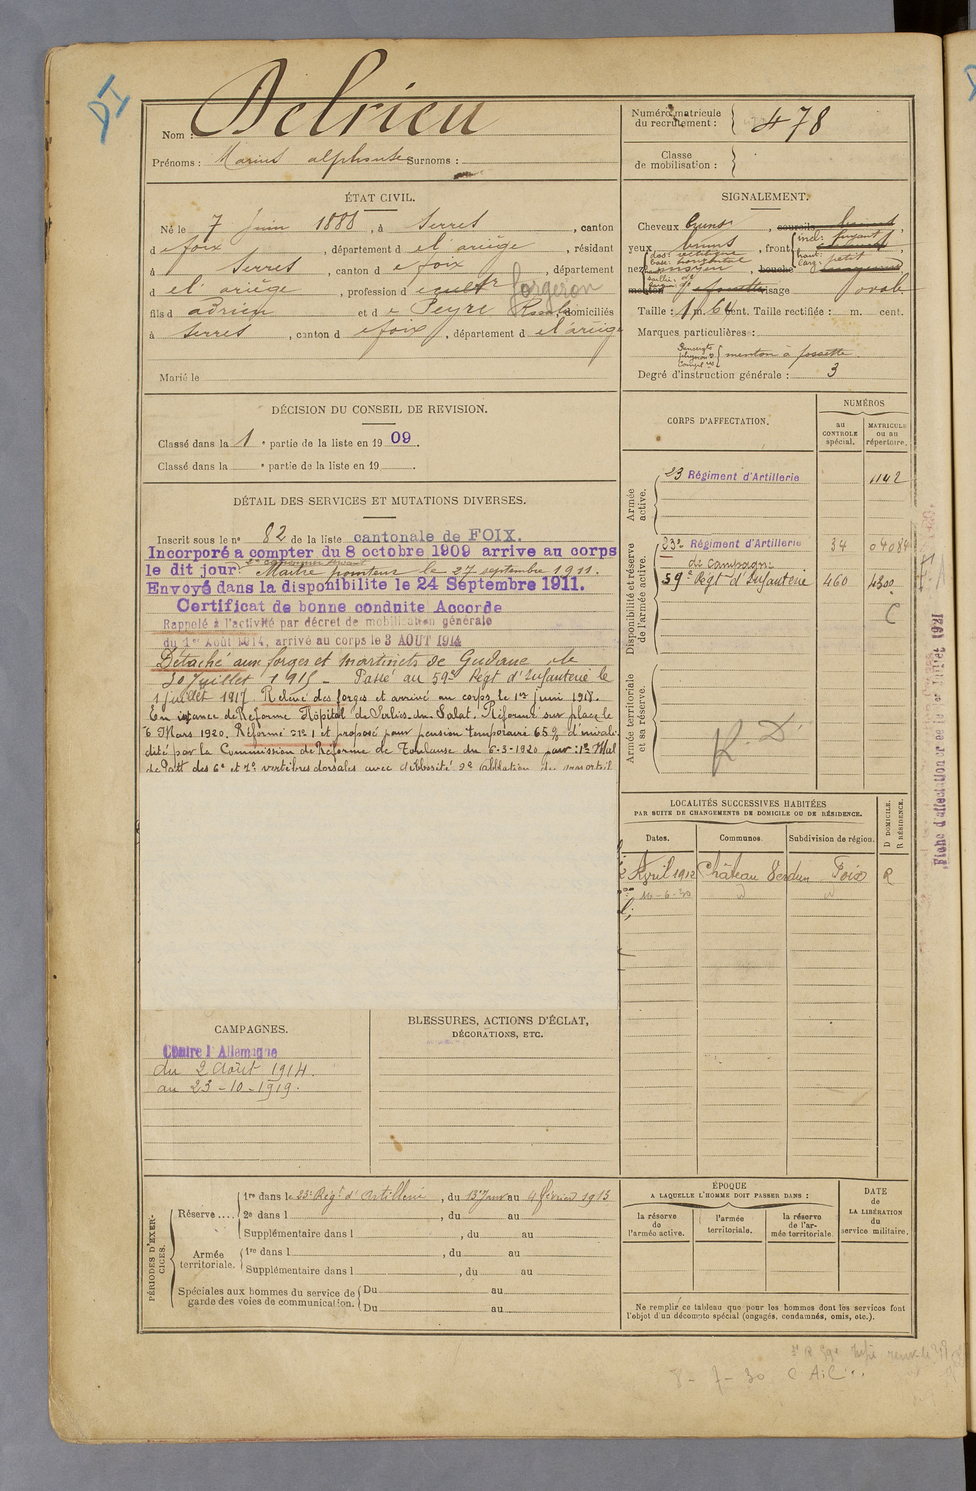 DI
Nom : Delrieu
Prénoms : Marius alphonse Surnoms :
Numéro matricule
du recrutement : 478
Classe
de mobilisation :
ÉTAT CIVIL.
Né le 7 Juin 1888, à Serres, canton
d e foix, département d el'ariège, résidant
à Serres, canton d e foix, département
d el'ariège, profession d e cultr forgeron
fils d adrien et d e Peyre Rose domiciliés
à Serres, canton d e foix, département d el'ariège
Marié le
SIGNALEMENT.
Cheveux bruns, sourcils
yeux bruns, front incl: fuyant
haut:
larg: petit
nez dos: rectiligne
base: horizontale
bouche
menton visage ovale
Taille : 1 m. 64 cent. Taille rectifiée : m. cent.
Marques particulières :
menton à fossette
Degré d'instruction générale : 3
DÉCISION DU CONSEIL DE REVISION.
Classé dans la 1e partie de la liste en 1909.
Classé dans la e partie de la liste en 19 .
DÉTAIL DES SERVICES ET MUTATIONS DIVERSES.
Inscrit sous le no 82 de la liste cantonale de FOIX.
Incorporé a compter du 8 octobre 1909 arrive au corps
le dit jour. Maître pointeur le 27 septembre 1911.
Envoyé dans la disponibilite le 24 Septembre 1911.
Certificat de bonne conduite Accorde
Rappelé à l'activité par décret de mobilisation générale
du 1er Août 1914, arrivé au corps le 3 AOUT 1914
Détaché aux forges et martinets de Gudane le
20 Juillet 1915 - Passé au 59e Regt d'Infanterie le
1 Juillet 1917. Retiré des forges et arrivé au corps le 1er juin 1918.
En instance de Réforme Hôpital de Salies-du-Salat. Réformé sur place le
6 Mars 1920. Réformé no 1 et proposé pour pension temporaire 65% d'invali-
dité par la Commission de Réforme de Toulouse du 6-3-1920 pour : 1o Mal
de Pott des 6e et 7e vertèbres dorsales avec gibbosité 2o
CORPS D'AFFECTATION.
NUMÉROS
au
CONTROLE
spécial.
MATRICULE
ou au
répertoire.
Armée
active.
23 Régiment d'Artillerie 1142
Disponibilité et réserve
de l'armée active.
23e Régiment d'Artillerie 34 04084
de Campagne
59e Régt d'Infanterie 460 4300
C
Armée territoriale
et sa réserve.
R. D.
Fiche d'affectation créée le 1er Juillet 1921
LOCALITÉS SUCCESSIVES HABITÉES
PAR SUITE DE CHANGEMENTS DE DOMICILE OU DE RÉSIDENCE.
Dates. Communes. Subdivision de région.
D DOMICILE.
R RÉSIDENCE.
2 Avril 1912 Château Verdun Foix R
10-6-30
CAMPAGNES.
Contre l'Allemagne
du 2 Août 1914.
au 23-10-1919.
BLESSURES, ACTIONS D'ÉCLAT,
DÉCORATIONS, ETC.
PÉRIODES D'EXER-
CICES.
Réserve ....
1re dans le 23e Régt d'Artillerie, du 13 Janv au 4 février 1913
2e dans l , du au
Supplémentaire dans l , du au
Armée
territoriale.
1re dans l , du au
Supplémentaire dans l , du au
Spéciales aux hommes du service de
garde des voies de communication.
Du au
Du au
ÉPOQUE
A LAQUELLE L'HOMME DOIT PASSER DANS :
la réserve
de
l'armée active.
l'armée
territoriale.
la réserve
de l'ar-
mée territoriale.
DATE
de
LA LIBÉRATION
du
service militaire.
Ne remplir ce tableau que pour les hommes dont les services font
l'objet d'un décompte spécial (engagés, condamnés, omis, etc.).
8-7-30